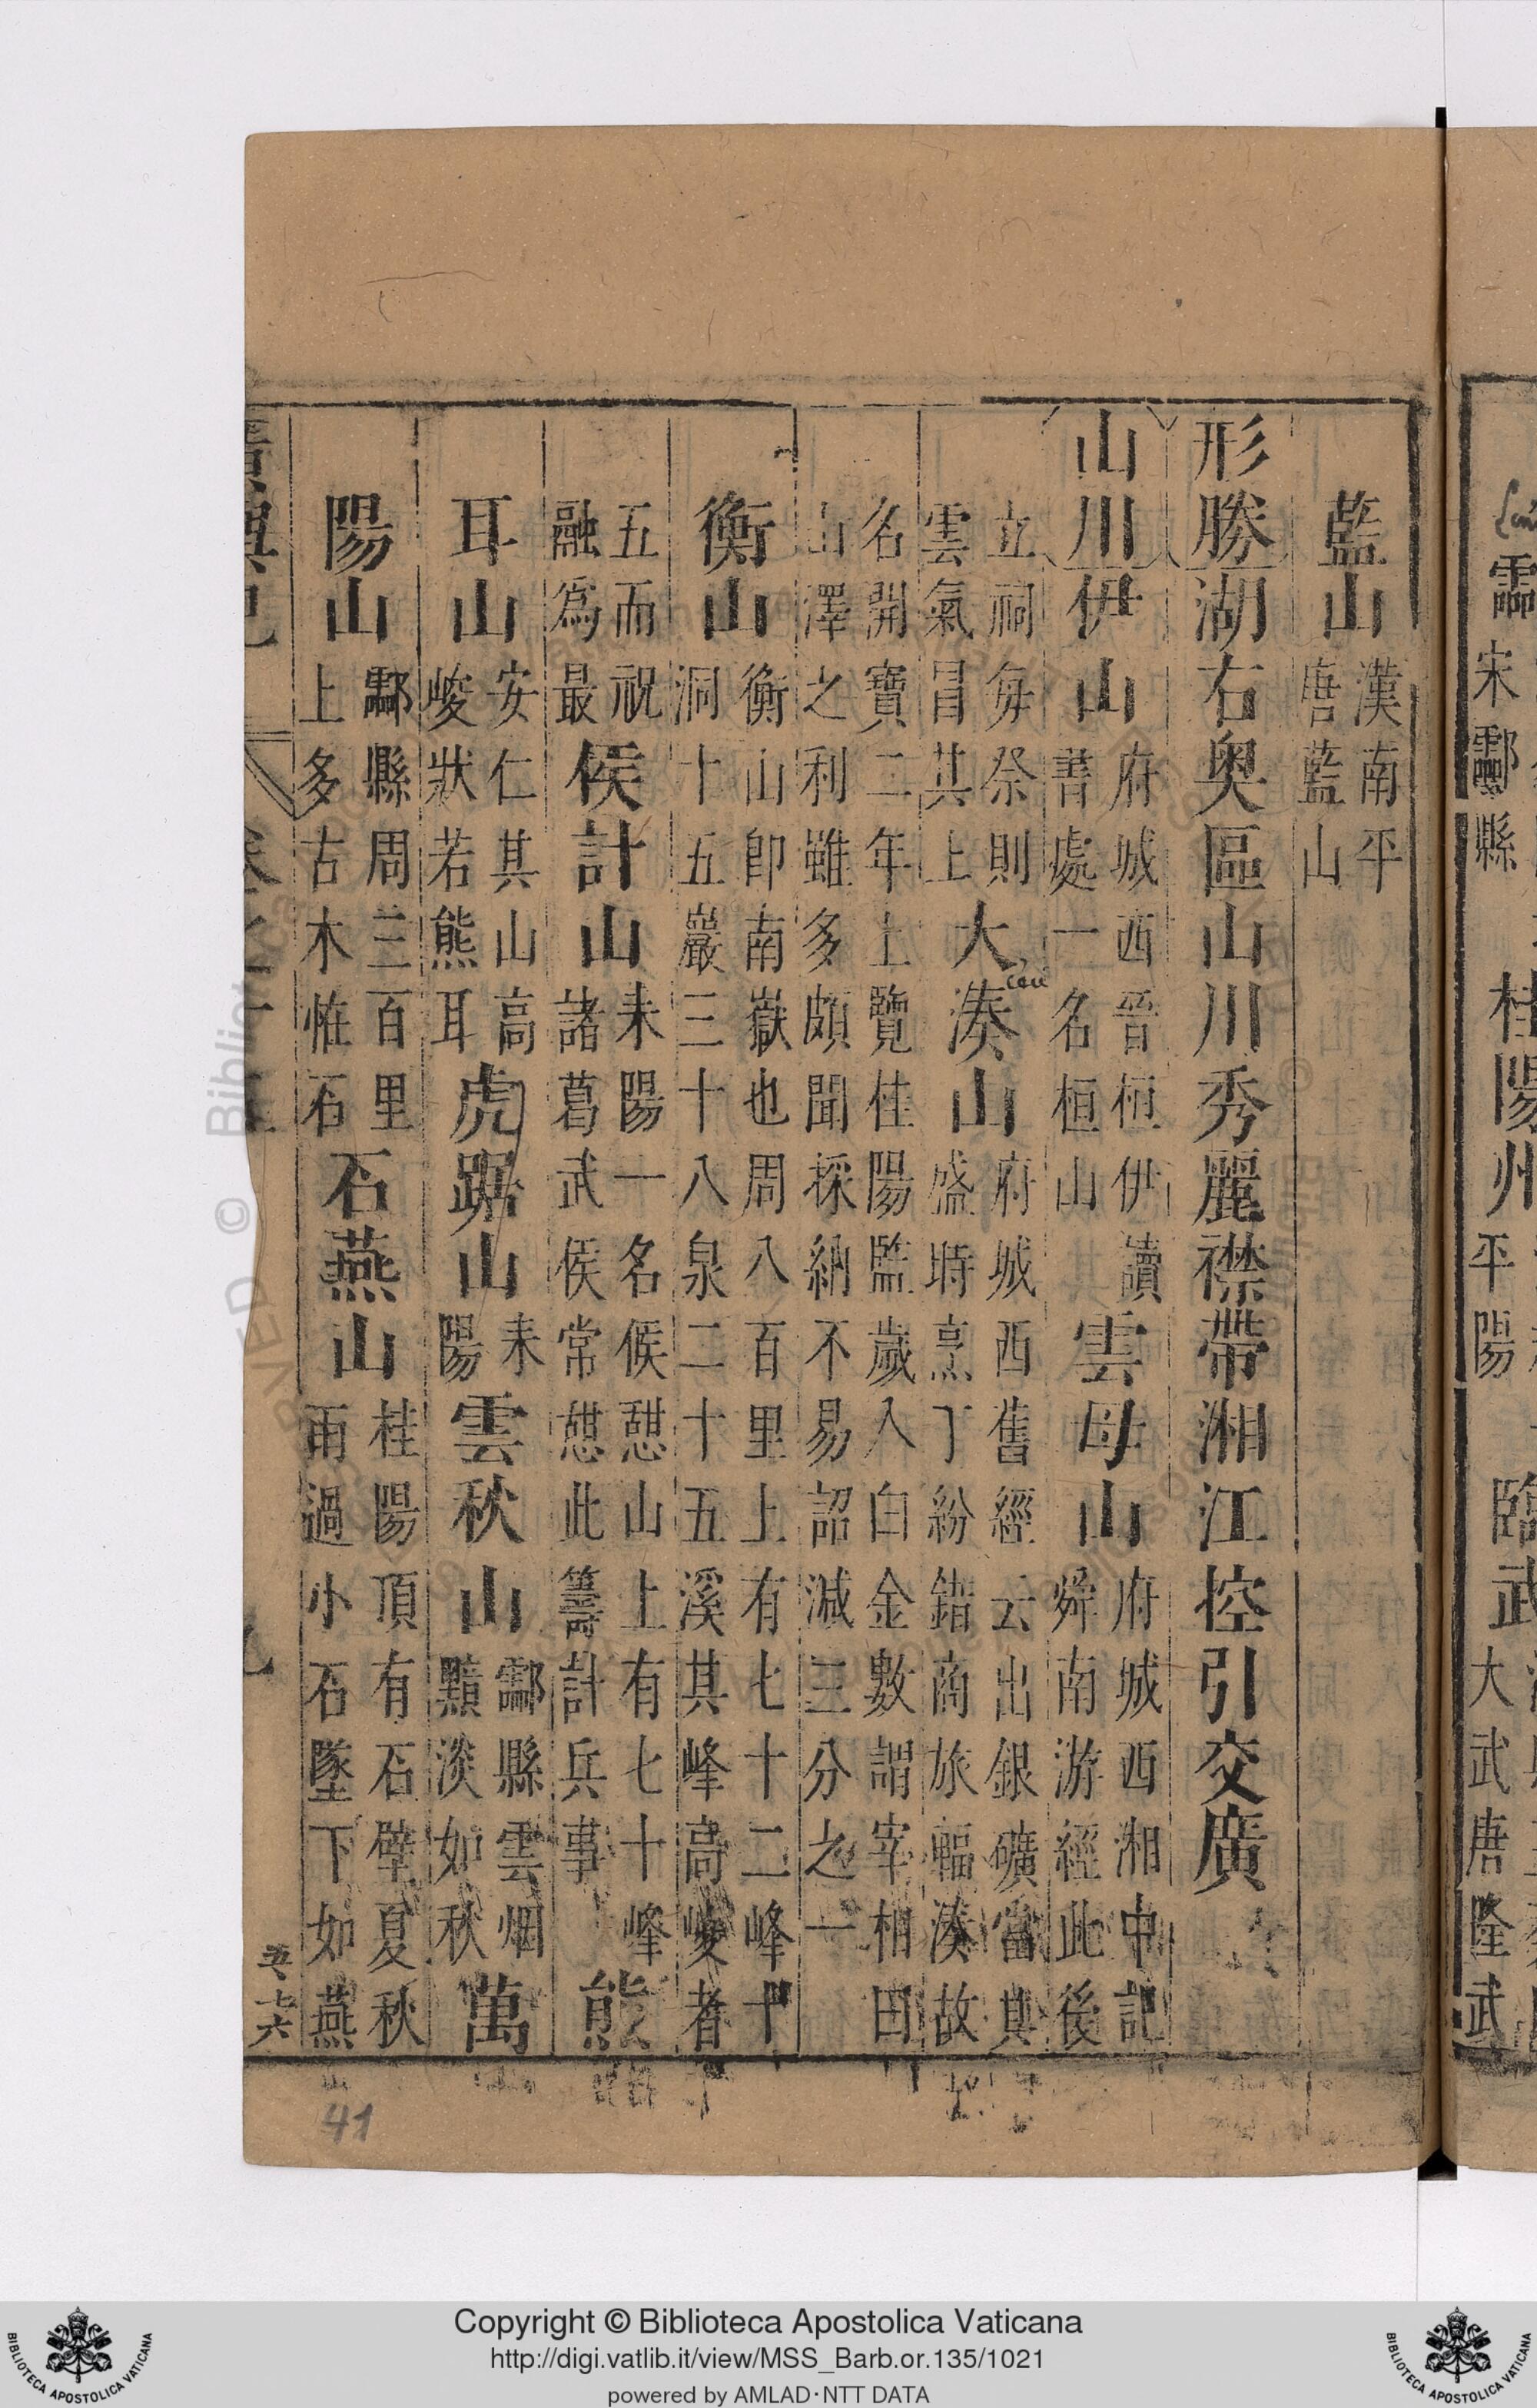 酃
宋酃縣　桂陽州　平陽　臨武　大武唐隆武
藍山　漢南平唐藍山
形勝　湖右奧區山川秀麗襟帶湘江控引交廣
山川　伊山　府城西晉桓伊讀書處一名桓山　雲母山　府城西湘中記舜南游經此後
立祠每祭則雲氣冒其上　大湊山　府城西舊經云出銀礦當其盛時烹丁紛錯商旅輻湊故
名開寶二年上覽桂陽監歲入白金數謂宰相曰山澤之利雖多頗聞採納不易詔減三分之一
衡山　衡山即南嶽也周八百里上有七十二峰十洞十五巖三十八泉二十五溪其峰高峻者
五而祝融為最　侯計山　耒陽一名侯憇山上有七十峰諸葛武侯常憇此籌計兵事　熊
耳山　安仁其山高峻狀若熊耳　虎踞山　耒陽　雲秋山　酃縣雲烟黯淡如秋　萬
陽山　酃縣周三百里上多古木怪石　石燕山　桂陽頂有石壁夏秋雨過小石墜下如燕
41
Copyright © Biblioteca Apostolica Vaticana
http://digi.vatlib.it/view/MSS_Barb.or.135/1021
powered by AMLAD·NTT DATA
BIBLIOTECA APOSTOLICA VATICANA
BIBLIOTECA APOSTOLICA VATICANA